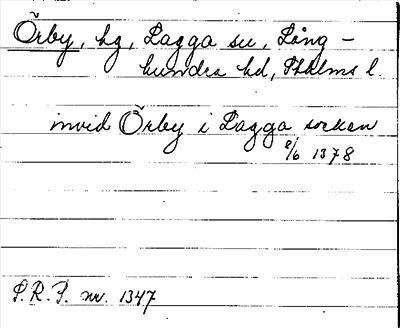 Örby, hg, Lagga sn, Lång-
hundra hd, Sthlms l.
invid Örby i Lagga socken
8/6 1378
P.R.P. nr. 1347